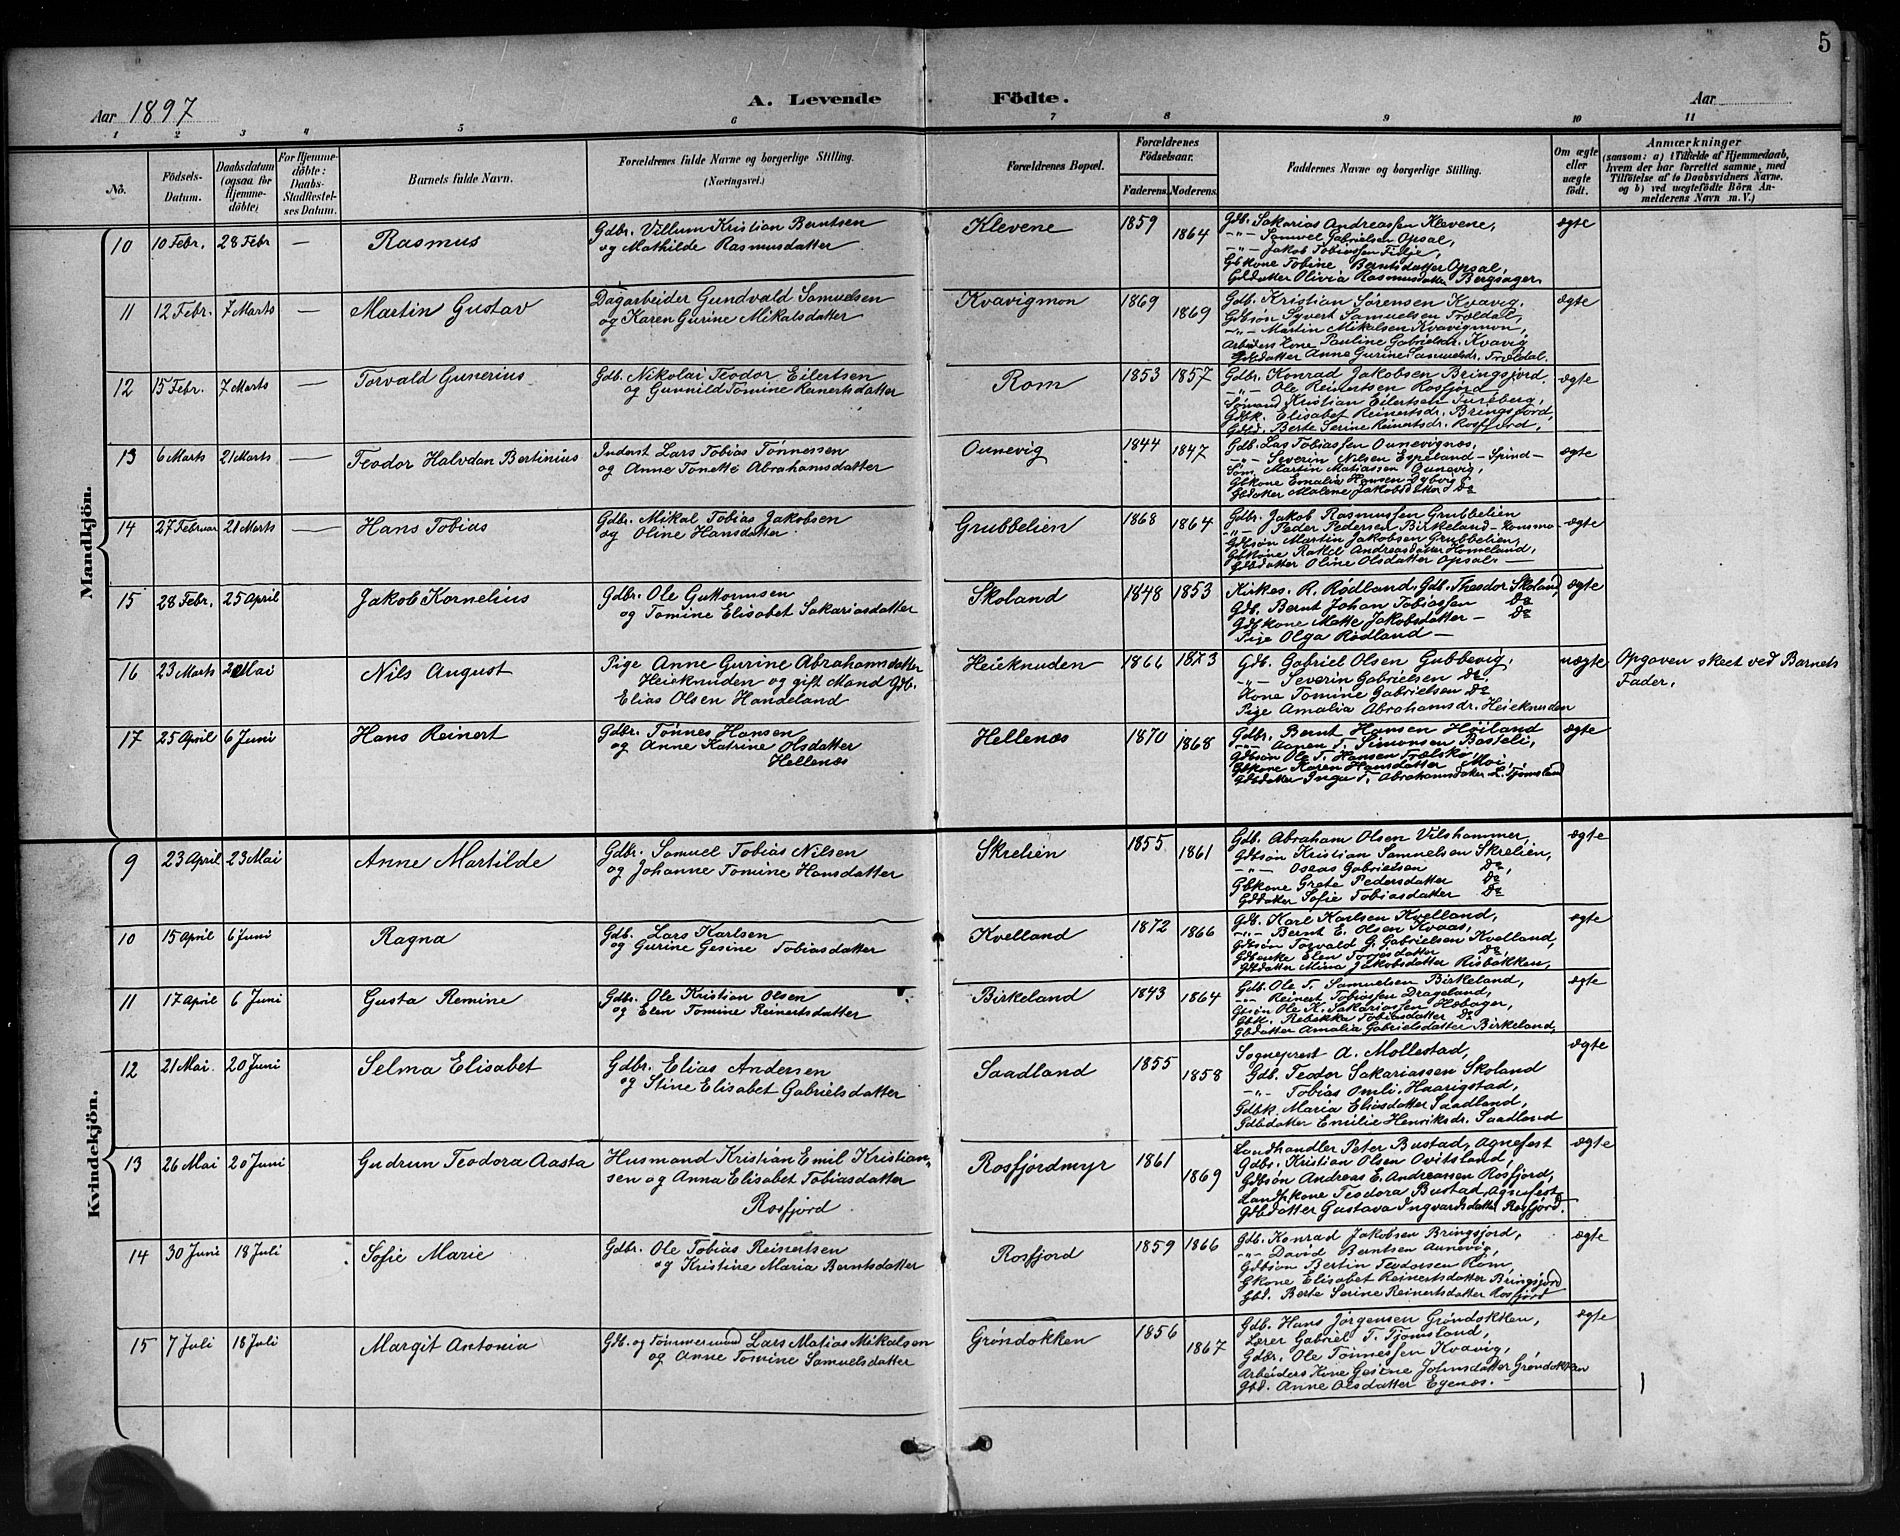 5
Aar 1897
A. Levende Födte.
Aar
1 2 3 4 5 6 7 8 9 10 11
No.
Födsels-Datum.
Daabsdatum (ogsaa for Hjemme-döbte)
For Hjemme-döbte: Daabs-Stadfæstel-ses Datum.
Barnets fulde Navn.
Forældrenes fulde Navne og borgerlige Stilling.
(Næringsvei.)
Forældrenes Bopæl.
Forældrenes Födselsaar.
Faderens. Moderens.
Faddernes Navne og borgerlige Stilling.
Om ægte eller uægte födt.
Anmærkninger
(saasom: a) i Tilfælde af Hjemmedaab,
hvem der har forrettet samme, med
Tilföielse af to Daabsvidners Navne.
og b) ved uægtefödte Börn An-
melderens Navn m. V.)
Mandkjön.
10 10 Febr. 28 Febr — Rasmus
Gdbr. Villum Kristian Berntsen
og Mathilde Rasmusdatter
Klevene 1859 1864
Gdb. Sakarias Andreassen Klevene,
-"- Samuel Gabrielsen Opsal,
-"- Jakob Tobiassen Fidje,
Gbkone Tobine Berntsdatter Opsal,
Gbdatter Olivia Rasmusdatter Bergsager
ægte
11 12 Febr. 7 Marts — Martin Gustav
Dagarbeider Gundvald Samuelsen
og Karen Gurine Mikalsdatter
Kvavigmon 1869 1869
Gdb. Kristian Sørensen Kvavig.
Gdbsøn Syvert Samuelsen Trældal,
-"- Martin Mikalsen Kvavigmon,
Arbeiders Kone Pauline Gabrielsdr. Kvavig
Gdbdatter Anne Gurine Samuelsdr. Trældal.
ægte
12 15 Febr. 7 Marts — Torvald Gunerius
Gdb. Nikolai Teodor Eilertsen
og Gunvild Tomine Reinertsdatter
Rom 1853 1857
Gdbr. Konrad Jakobsen Bringsjord.
-"- Ole Reinertsen Rosfjord
Sømand Kristian Eilertsen
Gdbk. Elisabet Reinertsdr. Bringsfjord,
Gdbd. Berte Serine Reinertsdr. Rosfjord,
ægte
13 6 Marts 21 Marts — Teodor Halvdan Bertinius
Inderst Lars Tobias Tønnessen
og Anne Tonette Abrahamsdatter
Ounevig 1844 1847
Gdb. Las Tobiassen Ounevignæs,
-"- Severin Nilsen Espeland – Spind –
Søm. Martin Matiassen Ounevig,
Gbkone Emalia Hansen Dyborg
Gbdatter Malene Jakobsdatter Do
ægte
14 27 Februar 21 Marts — Hans Tobias
Gdbr. Mikal Tobias Jakobsen
og Oline Hansdatter
Grubbelien 1868 1864
Gdbr. Jakob Rasmussen Grubbelien
-"- Peder Pedersen Birkeland – Konsmo –
Gdbsøn Martin Jakobsen Grubbelien,
Gbkone Rakel Andreasdatter Homeland,
Gdbdatter Oline Olsdatter Opsal –
ægte
15 28 Febr. 25 April Jakob Kornelius
Gdbr. Ole Guttormsen
og Tomine Elisabet Sakariasdatter
Skoland 1848 1853
Kirkes. R. Rødland, Gdb. Theodor Skoland,
Gdb. Bernt Johan Tobiassen Do
Gdbkone Mette Jakobsdatter – Do
Pige Olga Rødland –
ægte
16 23 Marts 20 Mai Nils August
Pige Anne Gurine Abrahamsdatter
Heieknuden og gift Mand Gdb.
Elias Olsen Handeland
Heieknuden 1866 1873
Gdb. Gabriel Olsen Gubbevig,
-"- Severin Gabrielsen Do
Kone Tomine Gabrielsen Do
Pige Amalia Abrahamsdr. Heieknuden
uægte
Opgaven skeet ved Barnets
Fader.
17 25 April 6 Juni Hans Reinert
Gdbr. Tønnes Hansen
og Anne Katrine Olsdatter
Hellenæs
Hellenæs 1870 1868
Gdbr. Bernt Hansen Høiland
-"- Aanen T. Simonsen Basteli,
Gdbsøn Ole T. Hansen Trælskør
Gbkone Karen Hansdatter Moi,
Gdbdatter Inga T. Abrahamsdatter L. Tjomsland
ægte
Kvindekjön.
9 23 April 23 Mai Anne Martilde
Gdbr. Samuel Tobias Nilsen
og Johanne Tomine Hansdatter
Skrelien 1855 1861
Gdb. Abraham Olsen Vilshammer,
Gdbsøn Kristian Samuelsen Skrelien,
-"- Oseas Gabrielsen Do,
Gbkone Grete Pedersdatter Do
Gddatter Sofie Tobiasdatter Do
ægte
10 15 April 6 Juni Ragna
Gdb. Lars Karlsen
og Gurine Gesine Tobiasdatter
Kvelland 1872 1866
Gdb. Karl Karlsen Kvelland,
-"- Bernt E. Olsen Kvaas,
Gdbsøn Torvald G. Gabrielsen Kvelland,
Gdbenke Elen Torjesdatter Do,
Gdbdatter Mina Jakobsdatter Risbakken,
ægte
11 17 April 6 Juni Gusta Remine
Gdbr. Ole Kristian Olsen
og Elen Tomine Reinertsdatter
Birkeland 1843 1864
Gdb. Ole T. Samuelsen Birkeland,
-"- Reinert Tobiassen Drageland,
Gbsøn Ole K. Sakariassen Hæbager,
Gbk. Rebekka Tobiasdatter Do
Gbdatter Amalia Gabrielsdatter Birkeland,
ægte
12 21 Mai. 20 Juni Selma Elisabet
Gdbr. Elias Andersen
og Stine Elisabet Gabrielsdatter
Saadland 1855 1858
Sogneprest A. Mollestad,
Gdb. Teodor Sakariassen Skoland
-"- Tobias Omli, Haarigstad,
Gdbk. Maria Eliasdatter Saadland,
Gdbdatter Emilie Henriksdr. Saadland
ægte
13 26 Mai 20 Juni Gudrun Teodora Aasta
Husmand Kristian Emil Kristian-
sen og Anna Elisabet Tobiasdatter
Rosfjord
Rosfjordmyr 1861 1869
Landhandler Peter Bustad, Agnefest
Gdbr. Kristian Olsen Ovitsland,
Gdbsøn Andreas E. Andreassen Rosfjord,
Landh. kone Teodora Bustad, Agnefest
Gdbdatter Gustava Ingvardsdatter Rosfjord.
ægte
14 30 Juni 18 Juli Sofie Marie
Gdbr. Ole Tobias Reinertsen
og Kristine Maria Berntsdatter
Rosfjord 1859 1866
Gdb. Konrad Jakobsen Bringsjord,
-"- David Berntsen Aunevig,
Gdbsøn Bertin Teodorsen Rom,
Gkone Elisabet Reinertsdatter Bringsjord
Gbd. Berte Serine Reinertsdatter Rosfjord
ægte
15 7 Juli 18 Juli Margit Antonia
Gdb. og Tømmermand Lars Matias Mikalsen
og Anne Tomine Samuelsdatter
Grøndokken 1856 1867
Gdb. Hans Jørgensen Grøndokken,
Lærer Gabriel T. Tjomsland,
Gdbr. Ole Tønnessen Kvavig,
Arbeiders Kone Gesine Johnsdatter Grøndokken
Gbd. Anne Olsdatter Egenæs. –
ægte